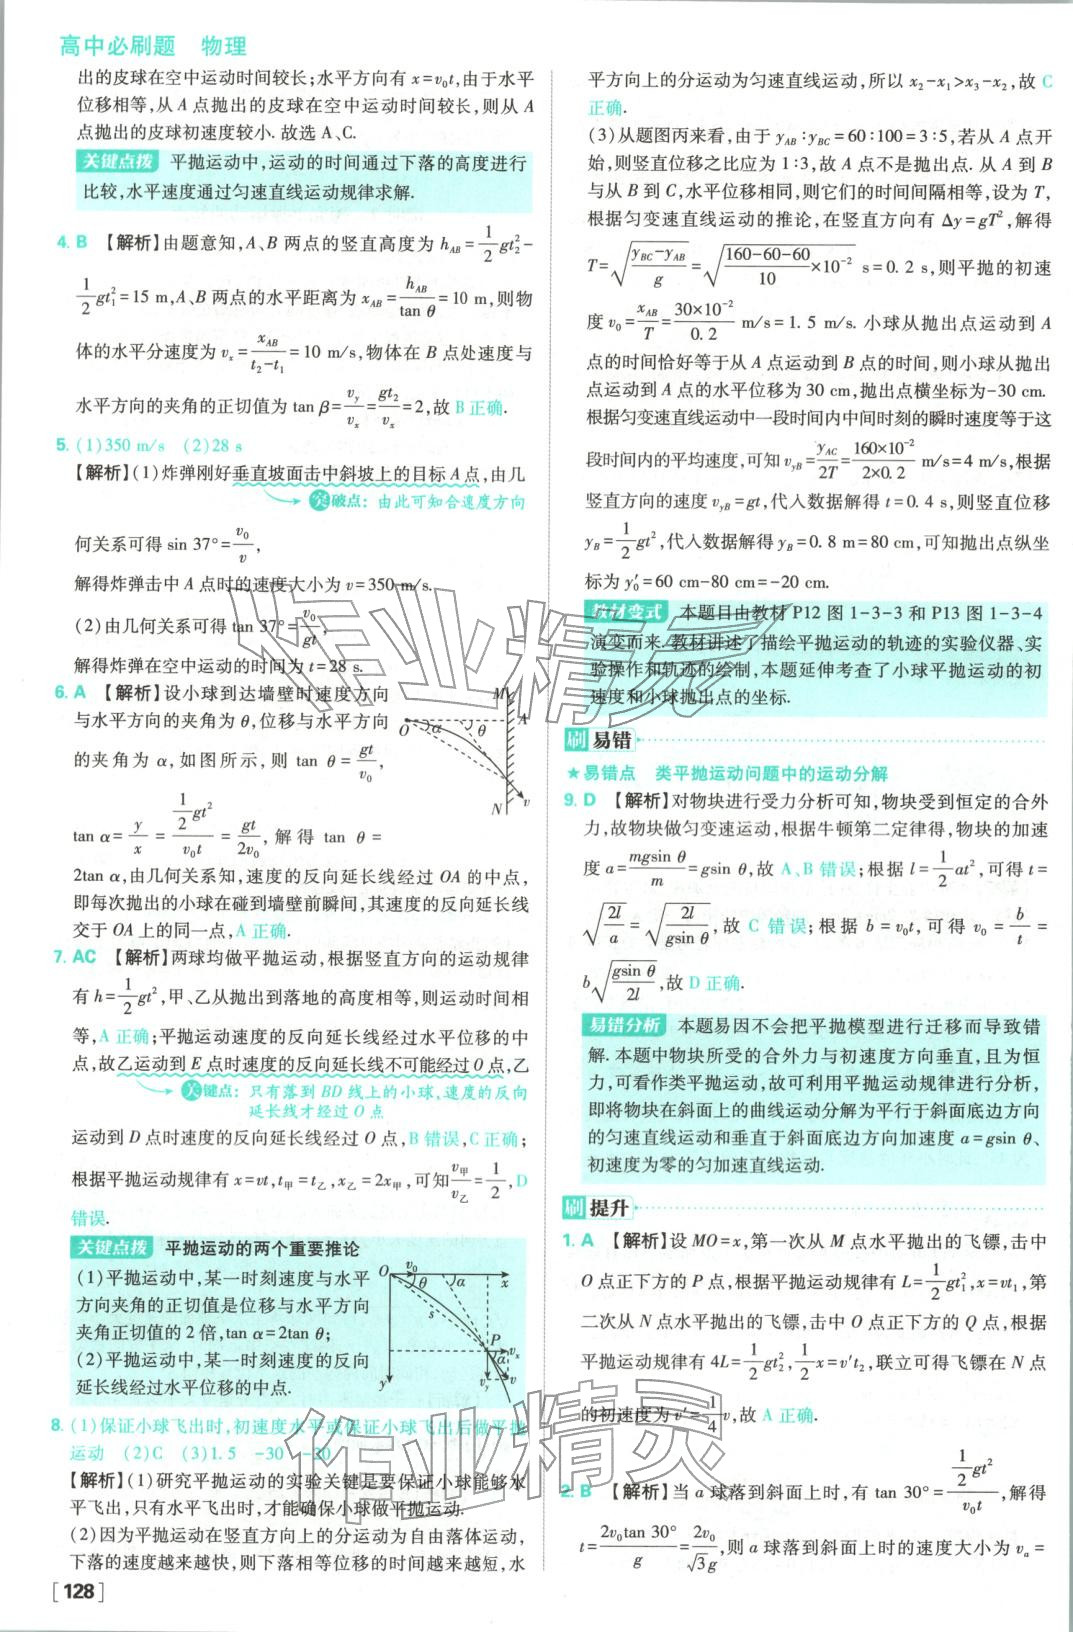 高中必刷题 物理
出的皮球在空中运动时间较长;水平方向有 x=v₀t,由于水平
位移相等,从 A 点抛出的皮球在空中运动时间较长,则从 A
点抛出的皮球初速度较小. 故选 A、C.
关键点拨 平抛运动中,运动的时间通过下落的高度进行
比较,水平速度通过匀速直线运动规律求解.
4. B 【解析】由题意知,A、B 两点的竖直高度为 h_AB=1/2gt₂²-
1/2gt₁²=15 m,A、B 两点的水平距离为 x_AB=h_AB/tan θ=10 m,则物
体的水平分速度为 vₓ=x_AB/(t₂-t₁)=10 m/s,物体在 B 点处速度与
水平方向的夹角的正切值为 tan β=v_y/vₓ=gt₂/vₓ=2,故 B 正确.
5. (1)350 m/s (2)28 s
【解析】(1)炸弹刚好垂直坡面击中斜坡上的目标 A 点,由几
突破点:由此可知合速度方向
何关系可得 sin 37°=v₀/v,
解得炸弹击中 A 点时的速度大小为 v=350 m/s.
(2)由几何关系可得 tan 37°=v₀/gt,
解得炸弹在空中运动的时间为 t=28 s.
6. A 【解析】设小球到达墙壁时速度方向
与水平方向的夹角为 θ,位移与水平方向
的夹角为 α,如图所示,则 tan θ=gt/v₀,
tan α=y/x=(1/2gt²)/(v₀t)=gt/2v₀,解得 tan θ=
2tan α,由几何关系知,速度的反向延长线经过 OA 的中点,
即每次抛出的小球在碰到墙壁前瞬间,其速度的反向延长线
交于 OA 上的同一点,A 正确.
M
O α θ A
N v
7. AC 【解析】两球均做平抛运动,根据竖直方向的运动规律
有 h=1/2gt²,甲、乙从抛出到落地的高度相等,则运动时间相
等,A 正确;平抛运动速度的反向延长线经过水平位移的中
点,故乙运动到 E 点时速度的反向延长线不可能经过 O 点,乙
关键点:只有落到 BD 线上的小球,速度的反向
延长线才经过 O 点
运动到 D 点时速度的反向延长线经过 O 点,B 错误,C 正确;
根据平抛运动规律有 x=vt,t甲=t乙,x乙=2x甲,可知v甲/v乙=1/2,D
错误.
关键点拨 平抛运动的两个重要推论
(1)平抛运动中,某一时刻速度与水平
方向夹角的正切值是位移与水平方向
夹角正切值的 2 倍,tan α=2tan θ;
(2)平抛运动中,某一时刻速度的反向
延长线经过水平位移的中点.
O v₀ θ α x
s
P vₓ
α
y v_y v
8. (1)保证小球飞出时,初速度水平或保证小球飞出后做平抛
运动 (2)C (3)1.5 -30 -20
【解析】(1)研究平抛运动的实验关键是要保证小球能够水
平飞出,只有水平飞出时,才能确保小球做平抛运动.
(2)因为平抛运动在竖直方向上的分运动为自由落体运动,
下落的速度越来越快,则下落相等位移的时间越来越短,水
[128]
平方向上的分运动为匀速直线运动,所以 x₂-x₁>x₃-x₂,故 C
正确.
(3)从题图丙来看,由于 y_AB∶y_BC=60∶100=3∶5,若从 A 点开
始,则竖直位移之比应为 1∶3,故 A 点不是抛出点. 从 A 到 B
与从 B 到 C,水平位移相同,则它们的时间间隔相等,设为 T,
根据匀变速直线运动的推论,在竖直方向有 Δy=gT²,解得
T=√((y_BC-y_AB)/g)=√((160-60-60)/10×10⁻²) s=0.2 s,则平抛的初速
度 v₀=x_AB/T=(30×10⁻²)/0.2 m/s=1.5 m/s. 小球从抛出点运动到 A
点的时间恰好等于从 A 点运动到 B 点的时间,则小球从抛出
点运动到 A 点的水平位移为 30 cm,抛出点横坐标为-30 cm.
根据匀变速直线运动中一段时间内中间时刻的瞬时速度等于这
段时间内的平均速度,可知 v_yB=y_AC/2T=(160×10⁻²)/(2×0.2) m/s=4 m/s,根据
竖直方向的速度 v_yB=gt,代入数据解得 t=0.4 s,则竖直位移
y_B=1/2gt²,代入数据解得 y_B=0.8 m=80 cm,可知抛出点纵坐
标为 y₀′=60 cm-80 cm=-20 cm.
教材变式 本题目由教材 P12 图 1-3-3 和 P13 图 1-3-4
演变而来. 教材讲述了描绘平抛运动的轨迹的实验仪器、实
验操作和轨迹的绘制,本题延伸考查了小球平抛运动的初
速度和小球抛出点的坐标.
刷 易错
★易错点 类平抛运动问题中的运动分解
9. D 【解析】对物块进行受力分析可知,物块受到恒定的合外
力,故物块做匀变速运动,根据牛顿第二定律得,物块的加速
度 a=mgsin θ/m=gsin θ,故 A、B 错误;根据 l=1/2at²,可得 t=
√(2l/a)=√(2l/gsin θ),故 C 错误;根据 b=v₀t,可得 v₀=b/t=
b√(gsin θ/2l),故 D 正确.
易错分析 本题易因不会把平抛模型进行迁移而导致错
解. 本题中物块所受的合外力与初速度方向垂直,且为恒
力,可看作类平抛运动,故可利用平抛运动规律进行分析,
即将物块在斜面上的曲线运动分解为平行于斜面底边方向
的匀速直线运动和垂直于斜面底边方向加速度 a=gsin θ、
初速度为零的匀加速直线运动.
刷 提升
1. A 【解析】设 MO=x,第一次从 M 点水平抛出的飞镖,击中
O 点正下方的 P 点,根据平抛运动规律有 L=1/2gt₁²,x=vt₁,第
二次从 N 点水平抛出的飞镖,击中 O 点正下方的 Q 点,根据
平抛运动规律有 4L=1/2gt₂²,1/2x=v′t₂,联立可得飞镖在 N 点
的初速度为 v′=1/4v,故 A 正确.
2. B 【解析】当 a 球落到斜面上时,有 tan 30°=(1/2gt²)/(v₀t),解得
t=2v₀tan 30°/g=2v₀/√3g,则 a 球落到斜面上时的速度大小为 vₐ=
作业精灵
作业精灵